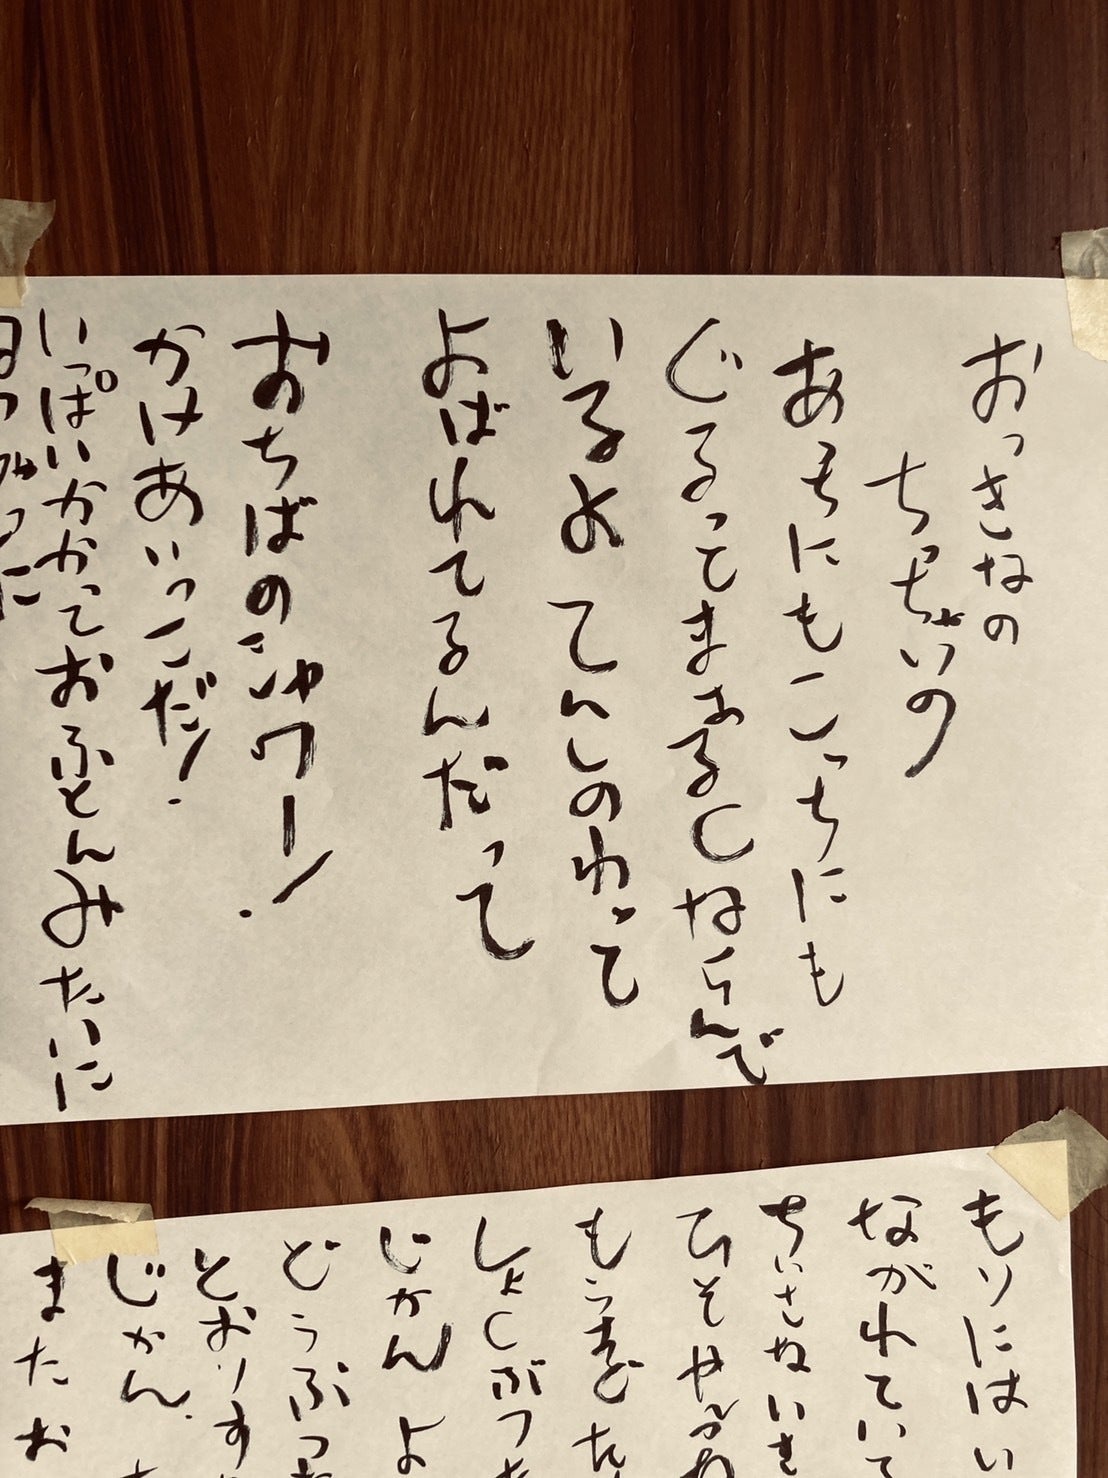 おっきなの
ちっちゃいの
あっちにもこっちにも
ぐるってまあるくならんで
いるよ てんしのわって
よばれてるんだって
おちばのシャワー!
かけあいっこだ!
いっぱいかかっておふとんみたいに
もりにはい
ながれてい
ちいさない
ひそやか
もうまど
しょくぶつ
じかん よ
どうぶつ
とおりす
じかん。
またお